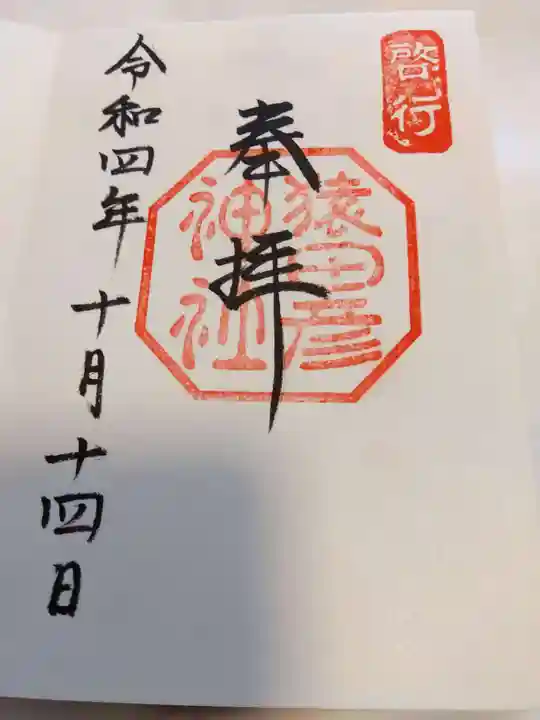 啓行
奉拝
猿田彦
神社
令和四年十月十四日